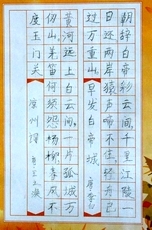 朝辞白帝彩云间千里江陵一
日还两岸猿声啼不住轻舟已
过万重山
早发白帝城 唐李白
黄河远上白云间一片孤城万
仞山羌笛何须怨杨柳春风不
度玉门关
凉州词 王之涣